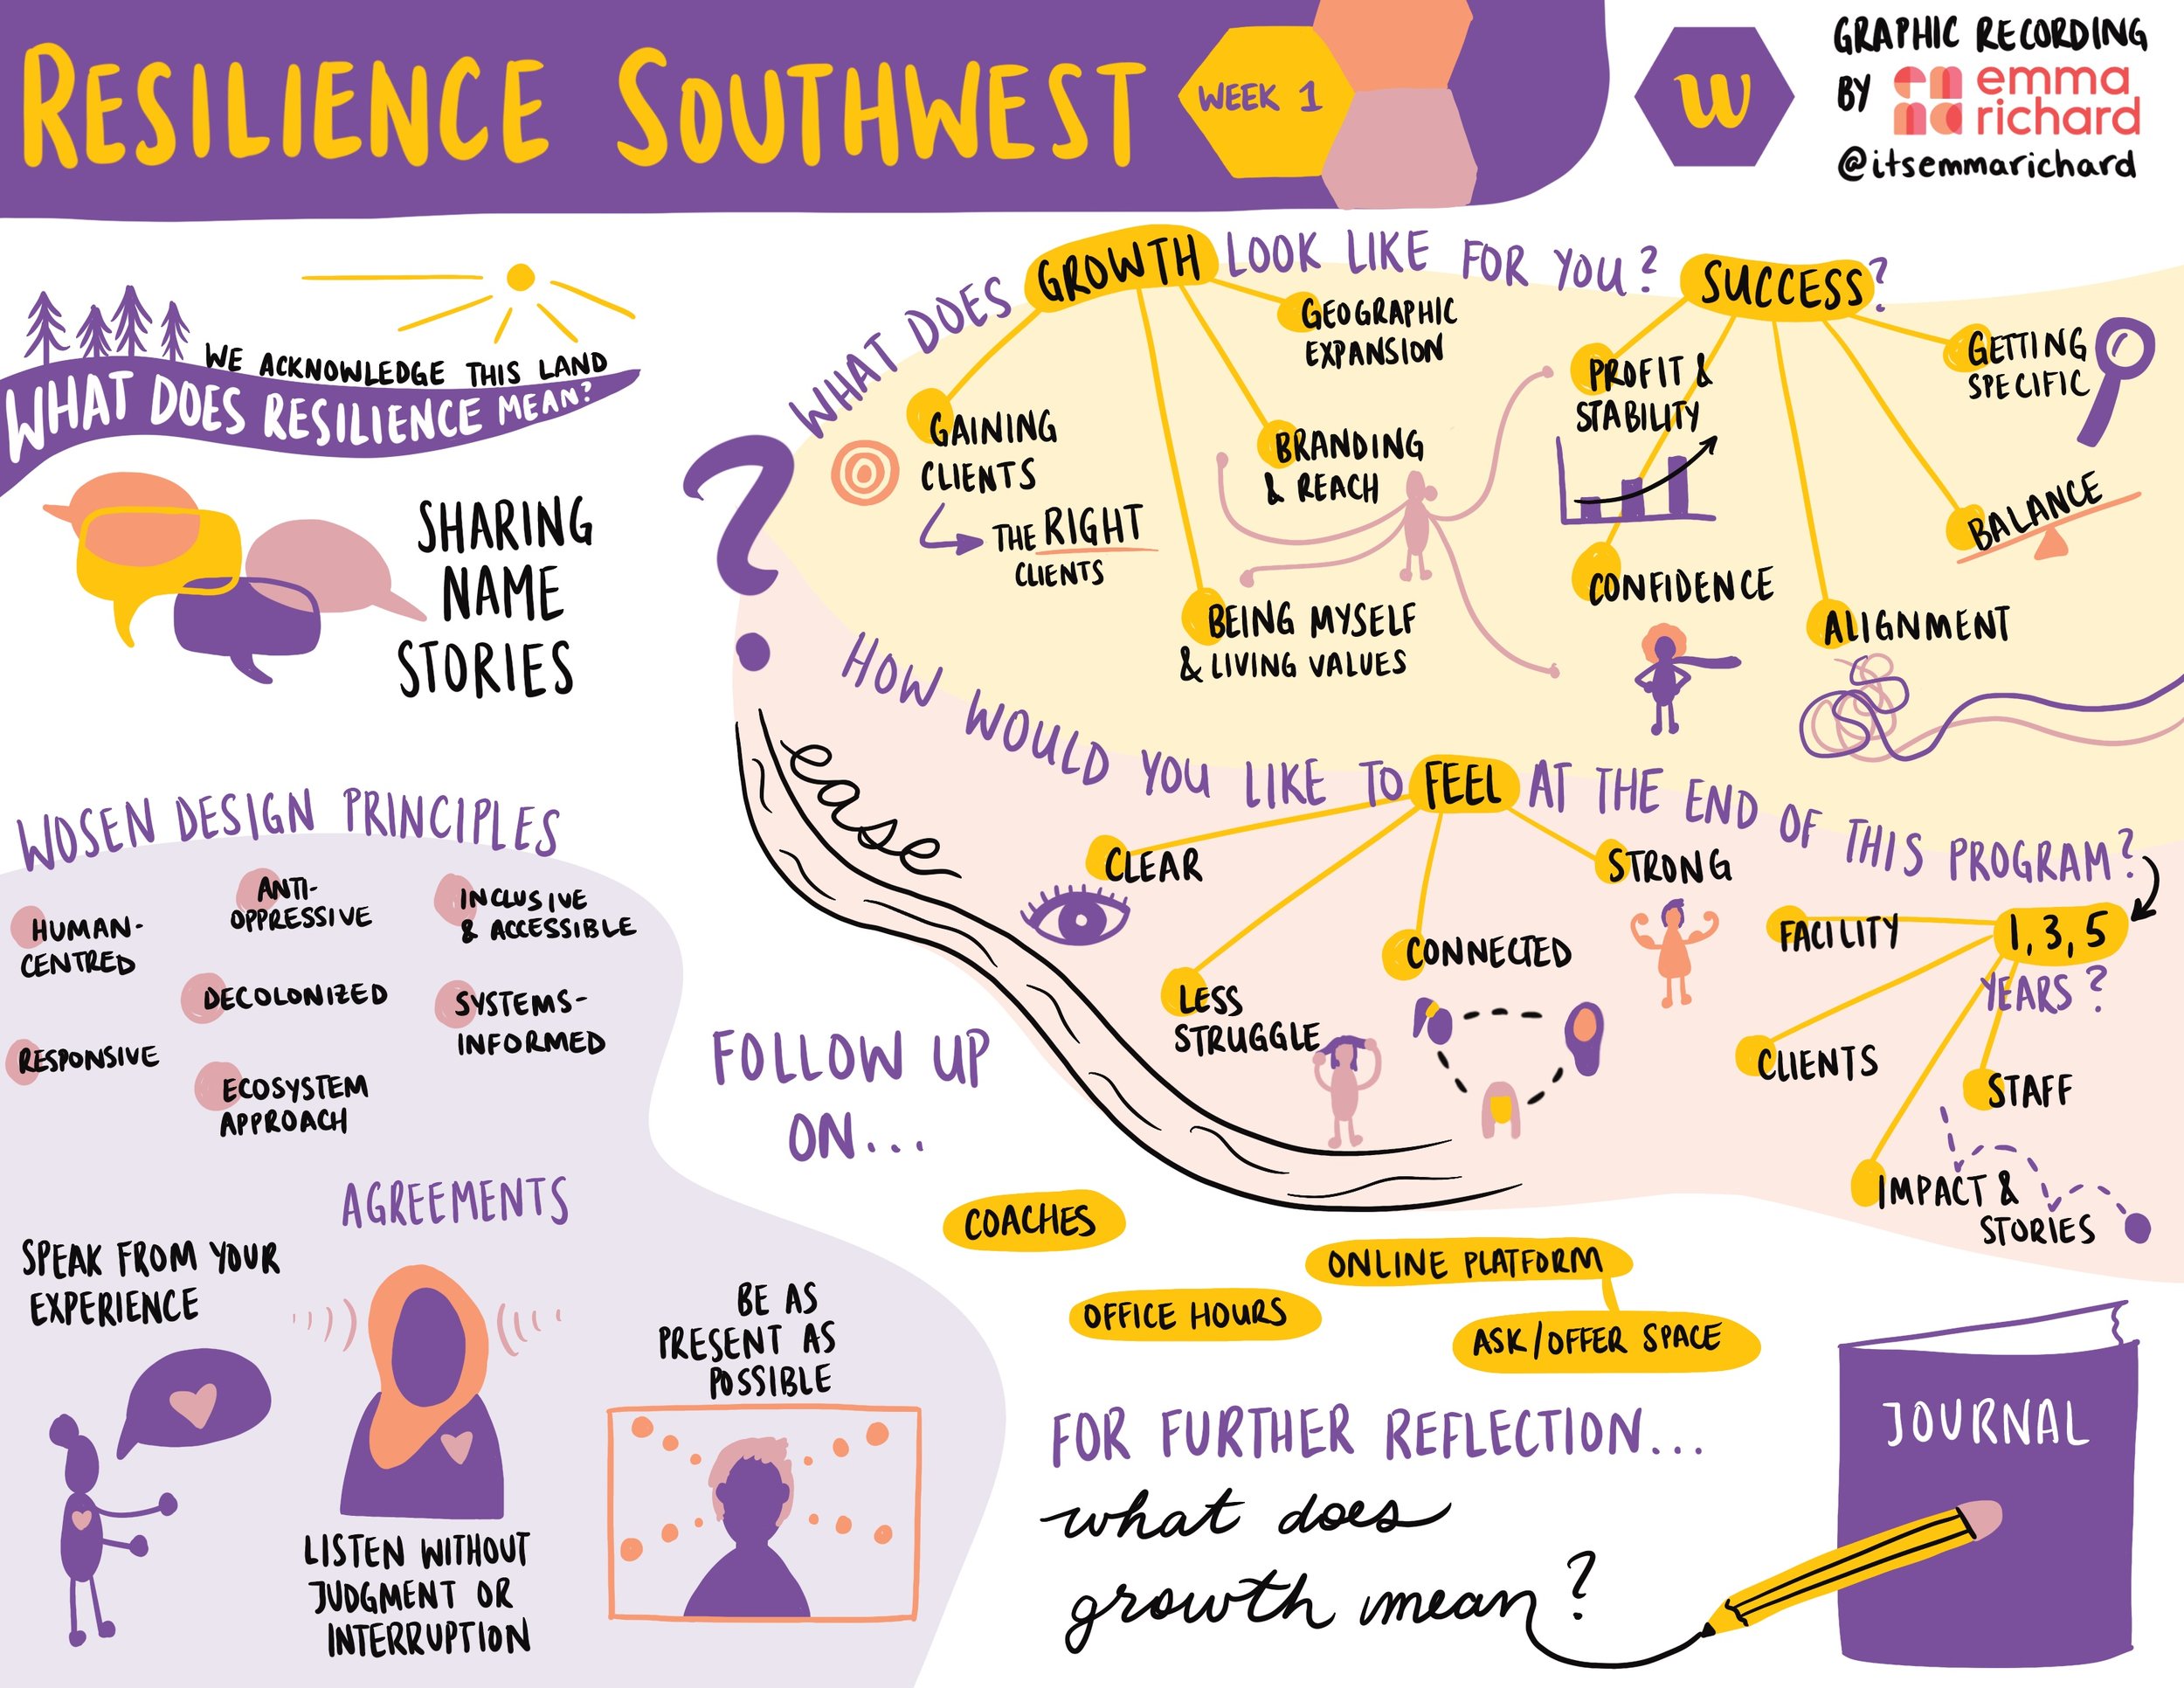 RESILIENCE SOUTHWEST
WEEK 1
w
GRAPHIC RECORDING
BY
emma
richard
@itsemmarichard
WE ACKNOWLEDGE THIS LAND
WHAT DOES RESILIENCE MEAN?
SHARING
NAME
STORIES
WOSEN DESIGN PRINCIPLES
HUMAN-
CENTRED
ANTI-
OPPRESSIVE
INCLUSIVE
& ACCESSIBLE
DECOLONIZED
SYSTEMS-
INFORMED
RESPONSIVE
ECOSYSTEM
APPROACH
AGREEMENTS
SPEAK FROM YOUR
EXPERIENCE
LISTEN WITHOUT
JUDGMENT OR
INTERRUPTION
BE AS
PRESENT AS
POSSIBLE
WHAT DOES GROWTH LOOK LIKE FOR YOU? SUCCESS?
GAINING
CLIENTS
THE RIGHT
CLIENTS
GEOGRAPHIC
EXPANSION
BRANDING
& REACH
BEING MYSELF
& LIVING VALUES
PROFIT &
STABILITY
CONFIDENCE
GETTING
SPECIFIC
BALANCE
ALIGNMENT
HOW WOULD YOU LIKE TO FEEL AT THE END OF THIS PROGRAM?
ease
CLEAR
LESS
STRUGGLE
CONNECTED
STRONG
1, 3, 5
YEARS?
FACILITY
CLIENTS
STAFF
IMPACT &
STORIES
FOLLOW UP
ON...
COACHES
OFFICE HOURS
ONLINE PLATFORM
ASK/OFFER SPACE
FOR FURTHER REFLECTION...
what does
growth mean?
JOURNAL